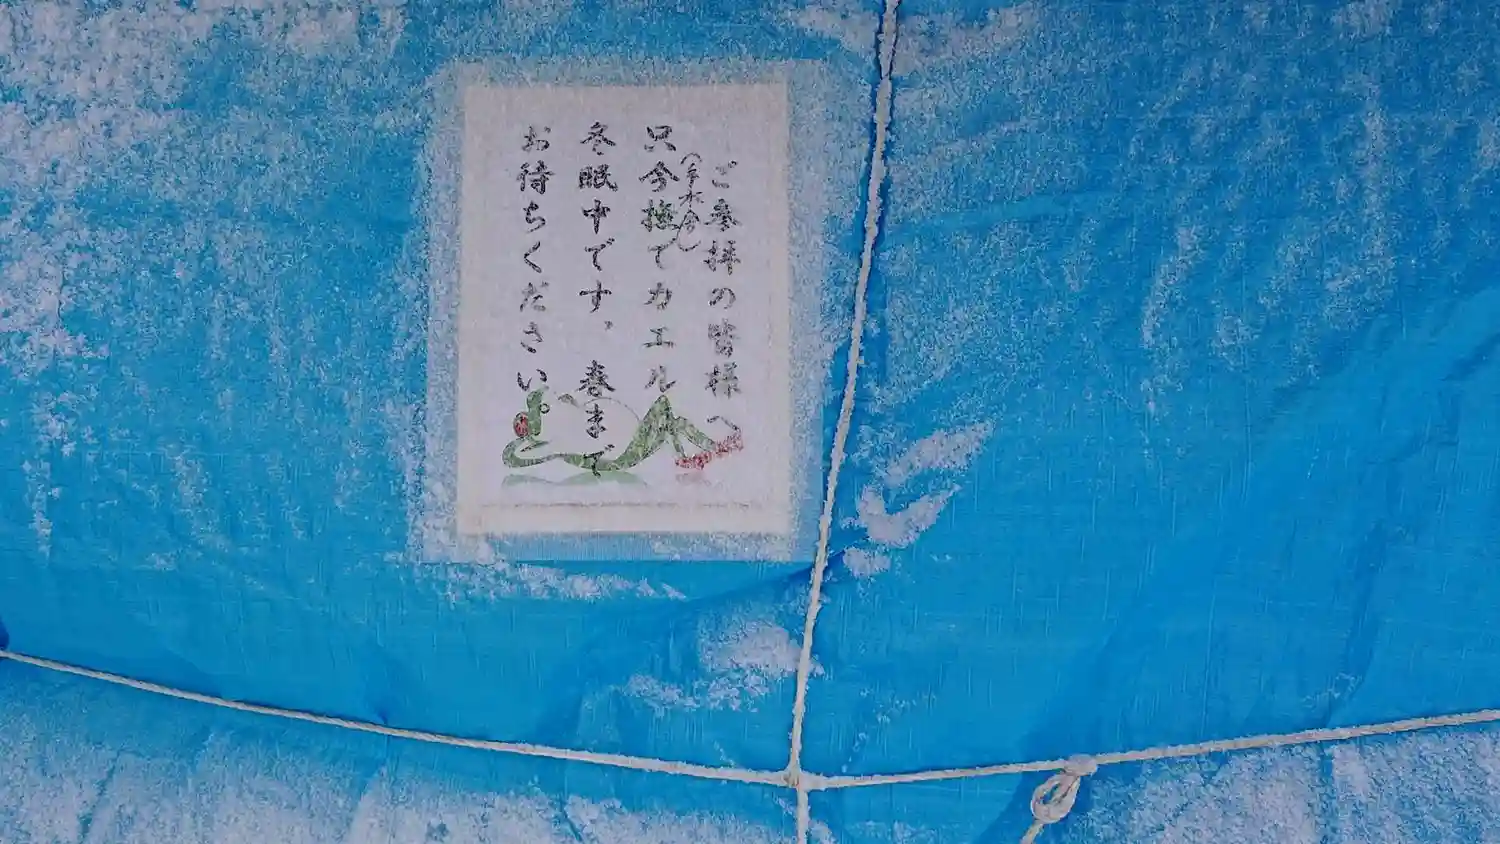 ご参拝の皆様へ
(手水舎)
只今撫でカエル
冬眠中です、春まで
お待ちください